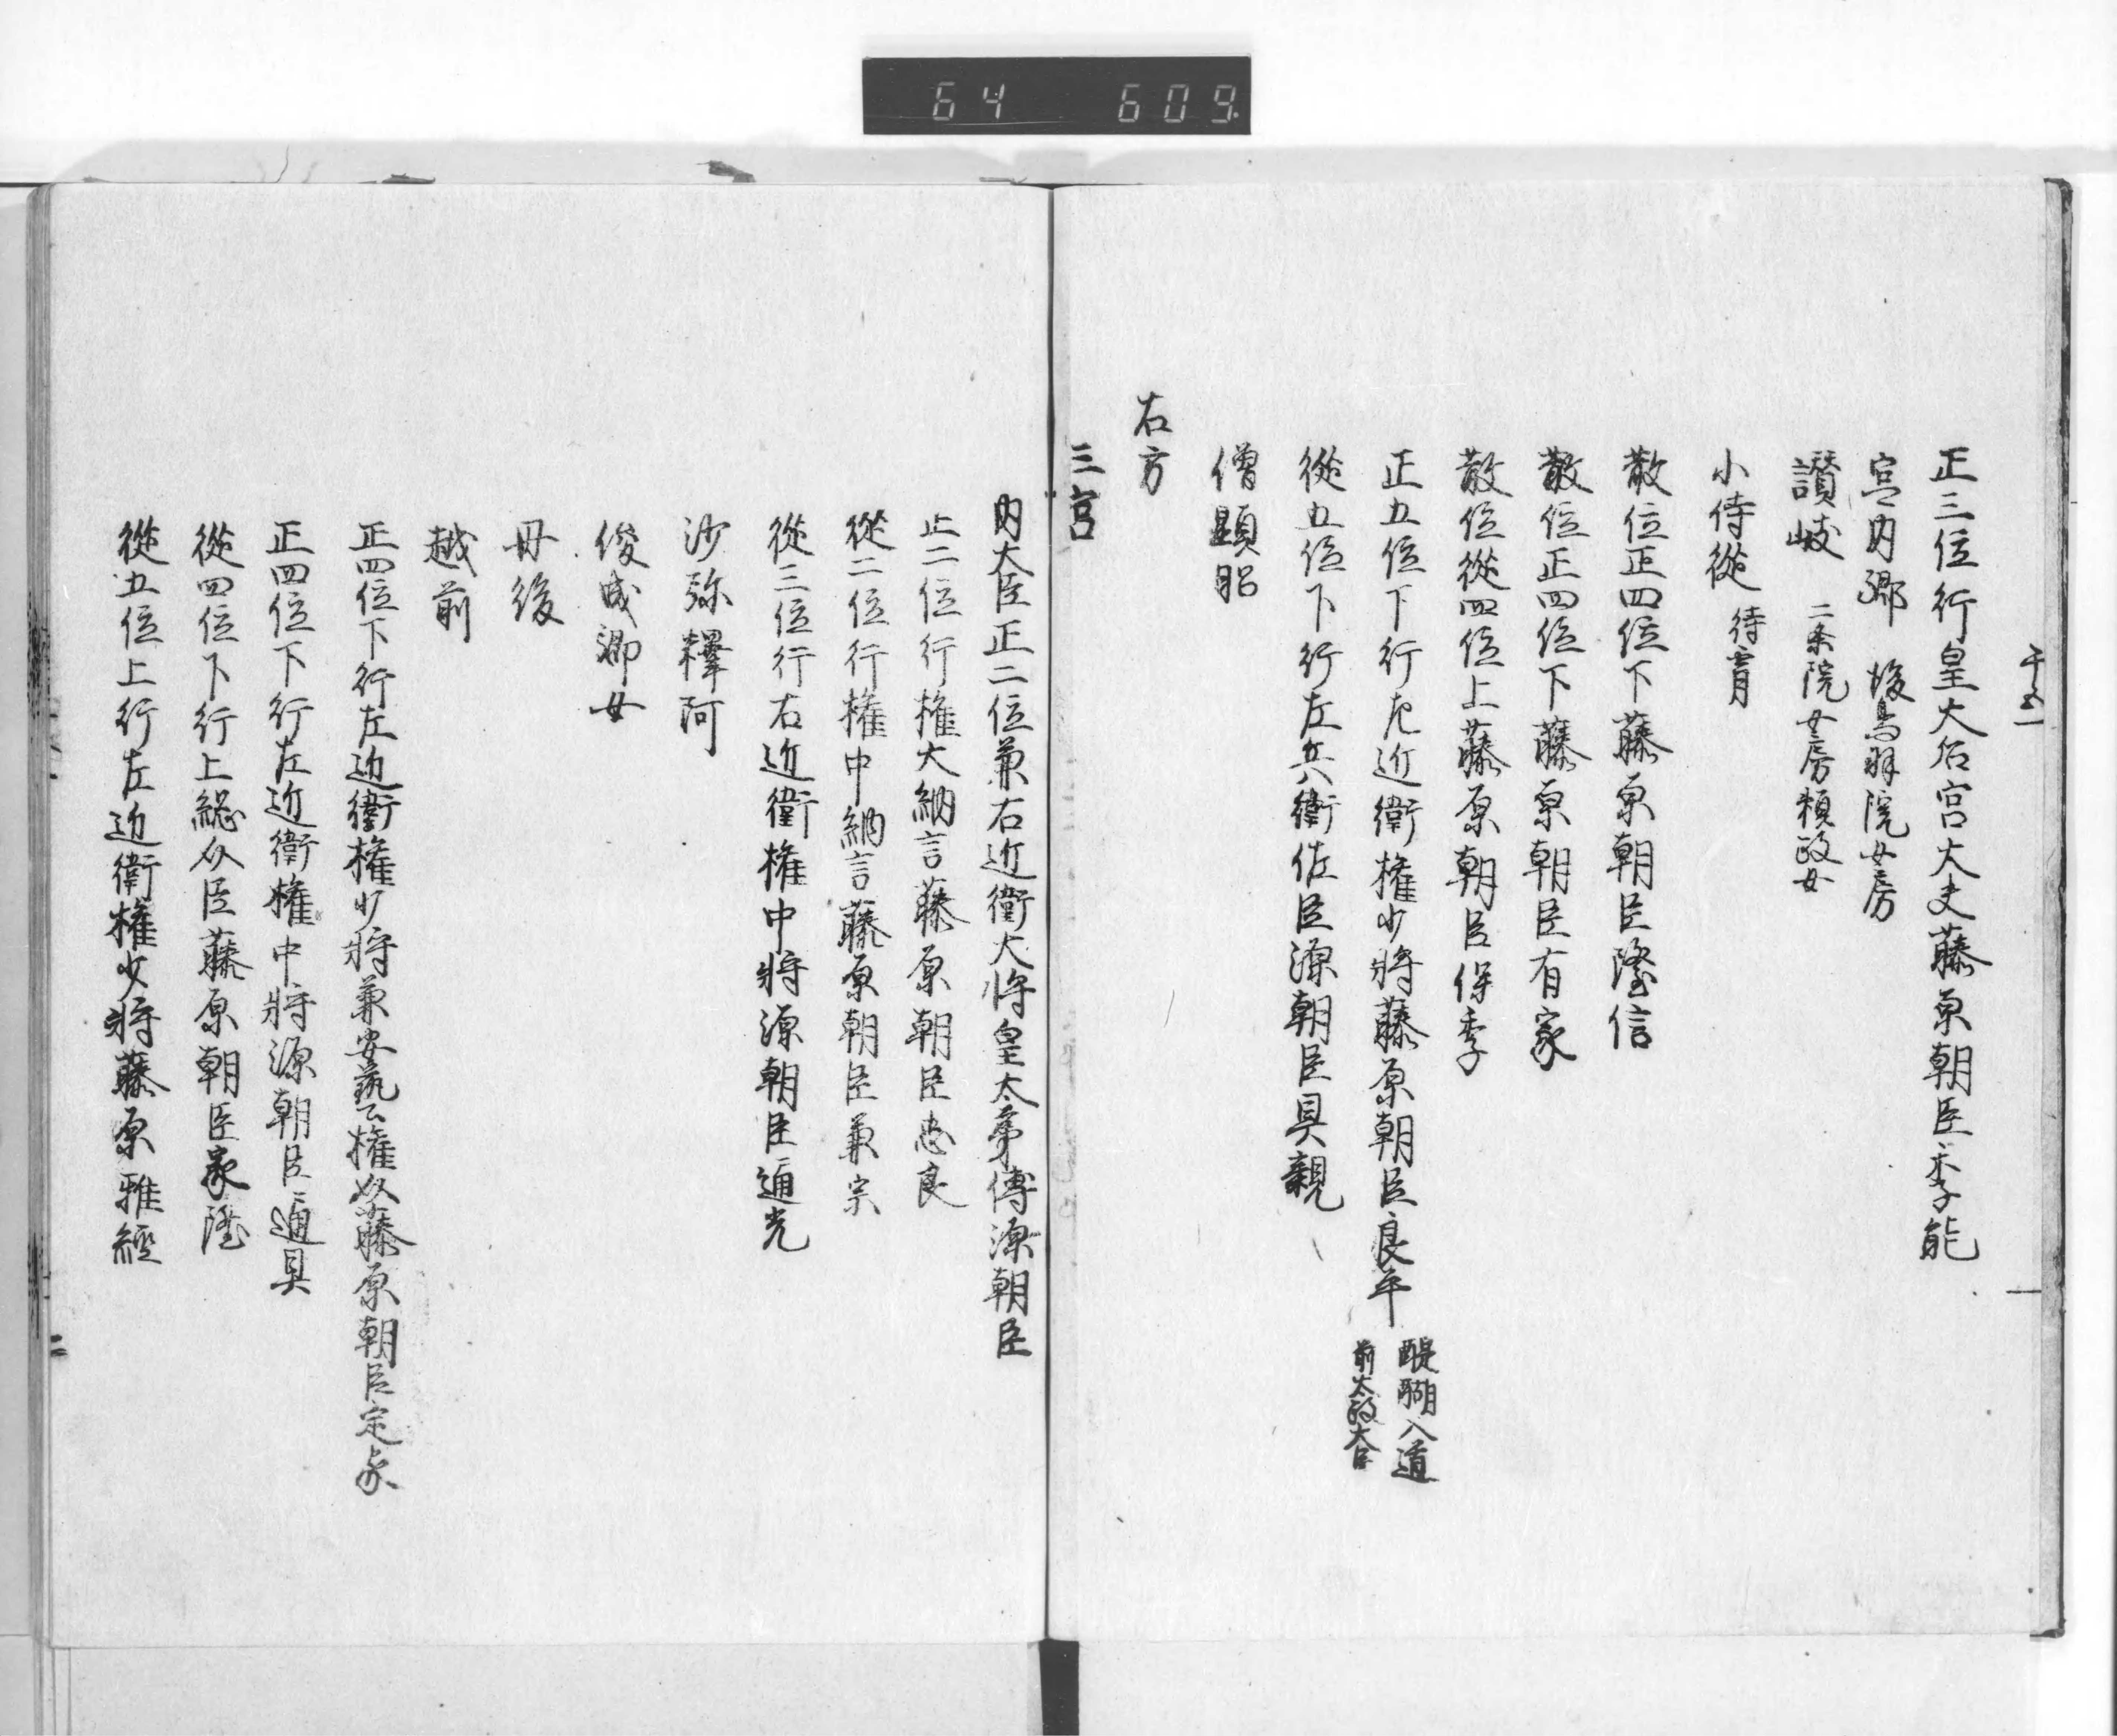 64 609
千五一
正三位行皇大后宮大夫藤原朝臣季能
宮内卿 後鳥羽院女房
讃岐 二条院女房頼政女
小侍従 待宵
散位正四位下藤原朝臣隆信
散位正四位下藤原朝臣有家
散位従四位上藤原朝臣保季
正五位下行左近衛権少将藤原朝臣良平 醍醐入道
前太政大臣
従五位下行左兵衛佐臣源朝臣具親
僧顕昭
右方
三宮
内大臣正二位兼右近衛大将皇太弟傅源朝臣
正二位行権大納言藤原朝臣忠良
従二位行権中納言藤原朝臣兼宗
従三位行右近衛権中将源朝臣通光
沙弥釋阿
俊成卿女
丹後
越前
正四位下行左近衛権少将兼安藝権介藤原朝臣定家
正四位下行左近衛権中将源朝臣通具
従四位下行上総介臣藤原朝臣家隆
従五位上行左近衛権少将藤原雅經
二